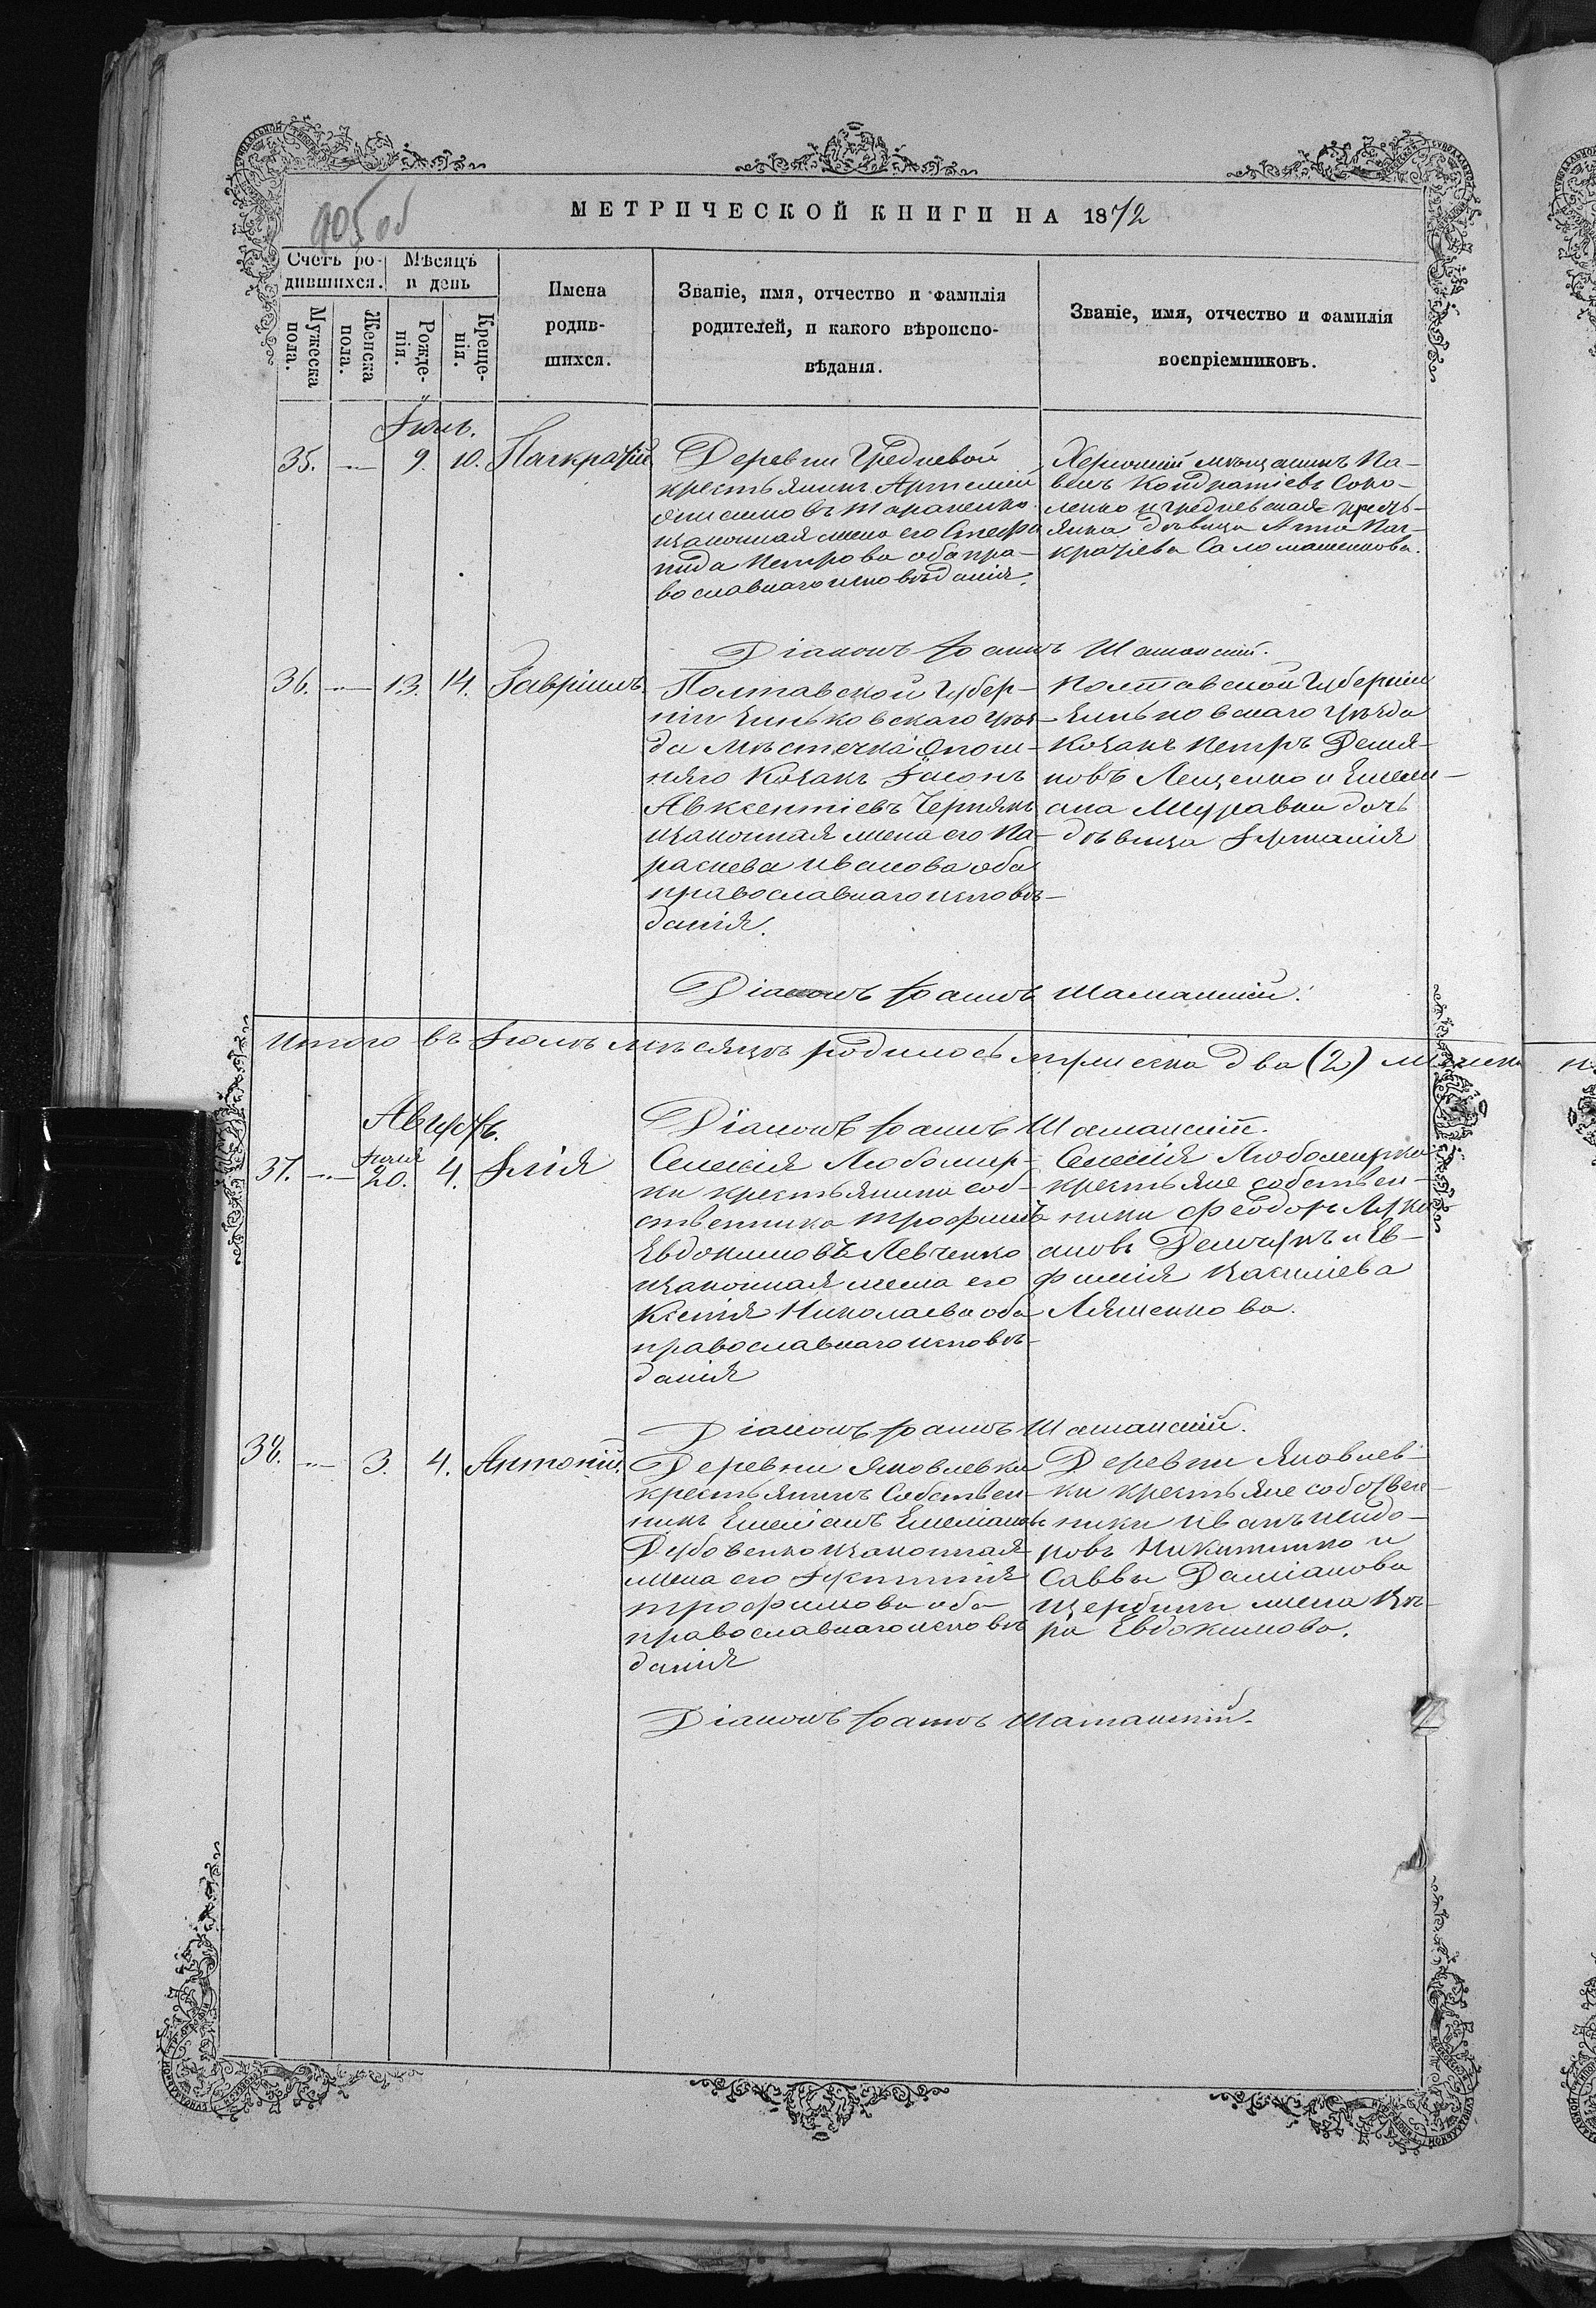 905 об
МЕТРИЧЕСКОЙ КНИГИ НА 1872
Счетъ ро-
дившихся.
Мѣсяцъ
и день
Мужеска
пола.
Женска
пола.
Рожде-
нія.
Креще-
нія.
Имена
родив-
шихся.
Званіе, имя, отчество и фамилія
родителей, и какого вѣроиспо-
вѣданія.
Званіе, имя, отчество и фамилія
воспріемниковъ.
Іюль.
35. — 9. 10. Панкратій
Деревни Гредневой
крестьянинъ Артемій
Онисимовъ Тараненко
изаконная жена его Стефа
нида Петрова оба пра-
вославнаго исповѣданія.
мѣщанинъ Па-
велъ Кондратіевъ Соко-
ленко и гредневская кресть-
янка дѣвица Анна Пан-
кратіева Саломашенкова.
Діаконъ Іоаннъ Шаманскій.
36. — 13. 14. Гавріилъ.
Полтавской Губер-
ніи Зиньковскаго уѣз-
да мѣстечка Опош-
няго Козакъ Іасонъ
Авксентіевъ Чернякъ
изаконная жена его Па-
раскева Иванова оба
православнаго исповѣ-
данія.
Полтавской Губерніи
Зиньковскаго уѣзда
Козакъ Петръ Демья-
новъ Лещенко и Емели-
ана Муравки дочь
дѣвица
Діаконъ Іоаннъ Шаманскій.
Итого въ Іюлѣ мѣсяцѣ родилось мужеска два (2) женска
Августъ.
Діаконъ Іоаннъ Шаманскій.
37. — Іюля 20. 4. Илія
Селенія Любомир-
ки крестьянина соб-
ственника Трофимъ
Евдокимовъ Левченко
изаконная жена его
Ксенія Николаева оба
православнаго исповѣ-
данія
Селенія Любомирки
крестьяне собствен-
ники Феодоръ Луки-
ановъ и Ев-
фимія Василіева
Ляшенкова.
Діаконъ Іоаннъ Шаманскій.
38. — 3. 4. Антоній.
Деревни Яковлевки
крестьянинъ Собствен-
никъ Емеліанъ Емеліановъ
изаконная
жена его
Трофимова оба
православнаго исповѣ
данія
Деревни Яковлев-
ки крестьяне собствен-
ники Иванъ Исидо-
ровъ Никитенко и
Саввы Даміанова
Щербины жена Вѣ-
ра Евдокимова.
Діаконъ Іоаннъ Шаманскій.